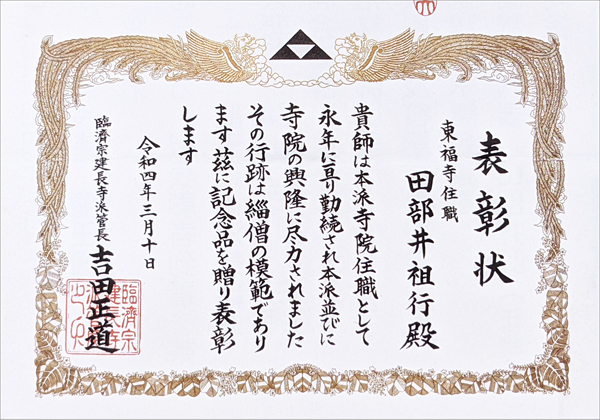 表彰状
東福寺住職
田部井祖行殿
貴師は本派寺院住職として
永年に亘り勤続され本派並びに
寺院の興隆に尽力されました
その行跡は緇僧の模範であり
ます茲に記念品を贈り表彰
します
令和四年三月十日
臨済宗建長寺派管長 吉田正道